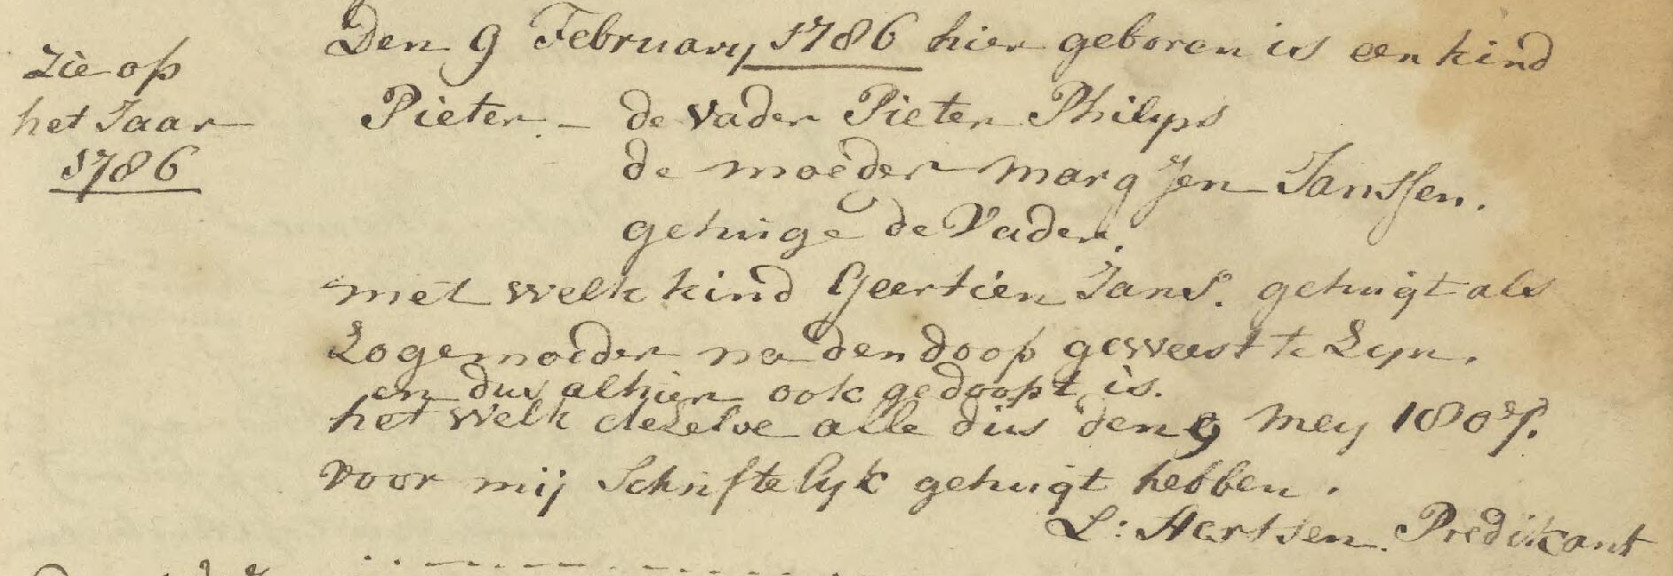 Zie op
het Jaar
1786
Den 9 February 1786 hier geboren is een kind
Pieter. - de vader Pieter Philyps
de moeder Marg Jen Janssen.
getuige de Vader.
met welk kind Geertien Jans. getuigt als
Zogemoeder na den doop geweest te Zyn.
en dus alhier ook gedoopt is.
het welk dezelve alle dus den 9 Mey 1807.
voor mij Schriftelyk getuigt hebben.
L: Hertsen. Predikant